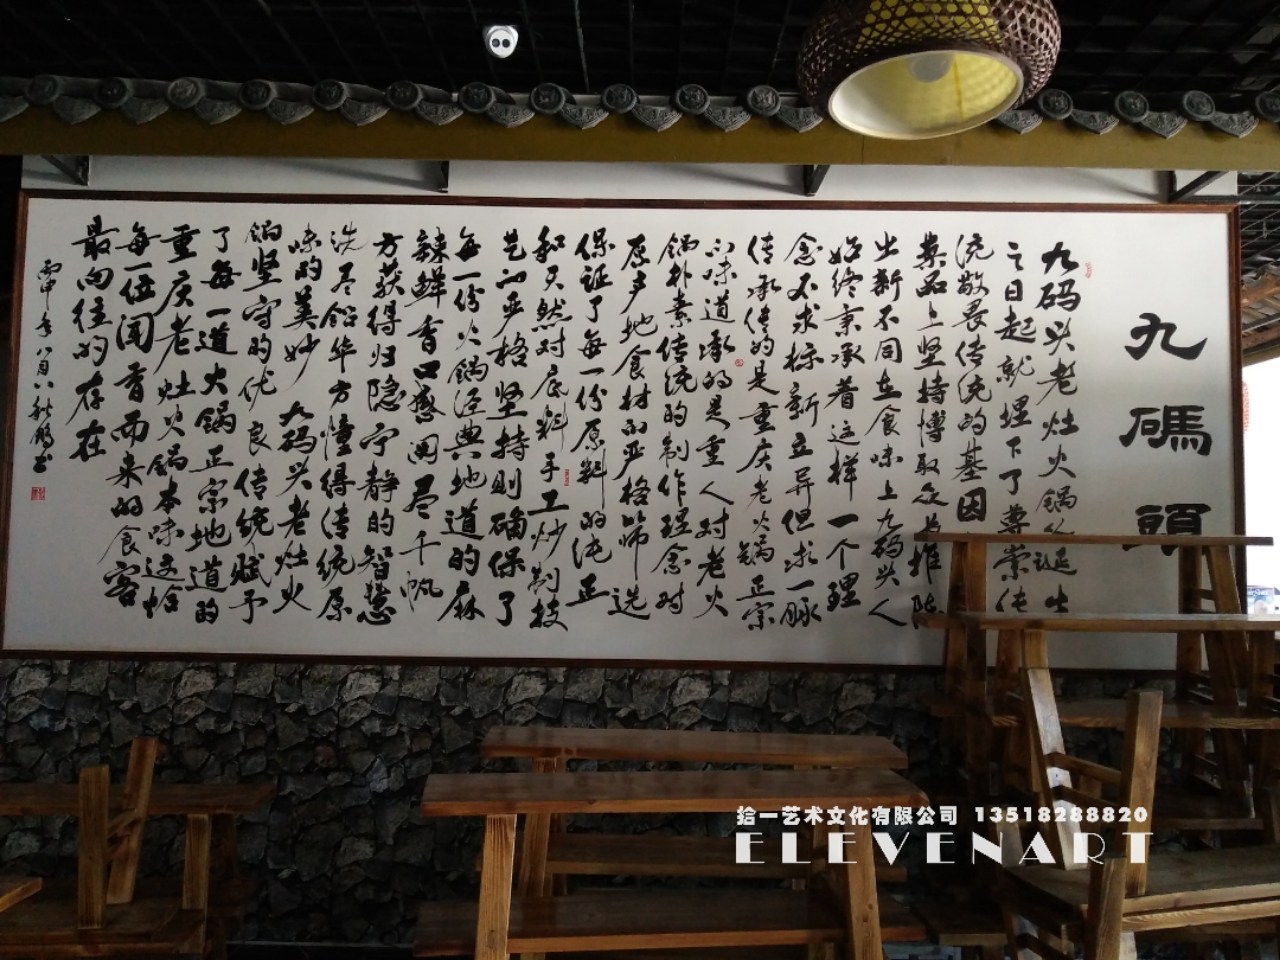 九碼頭
九码头老灶火锅从诞生
之日起就埋下了尊崇传
统敬畏传统的基因
菜品上坚持博取众长推陈
出新不同在食味上九码头人
始终秉承着这样一个理
念不求标新立异但求一脉
传承传的是重庆老火锅正宗
味道承的是重人对老火
锅朴素传统的制作理念对
原产地食材的严格筛选
保证了每一份原料的纯正
和天然对底料手工炒制技
艺的严格坚持则确保了
每一份火锅经典地道的麻
辣鲜香口感阅尽千帆
方获得归隐宁静的智慧
洗尽铅华方懂得传统原
味的美妙 九码头老灶火
锅坚守的优良传统赋予
了每一道火锅正宗地道的
重庆老灶火锅本味这恰
每一位闻香而来的食客
最向往的存在
丙申年八月八秋 书
拾一艺术文化有限公司 13518288820
ELEVENART